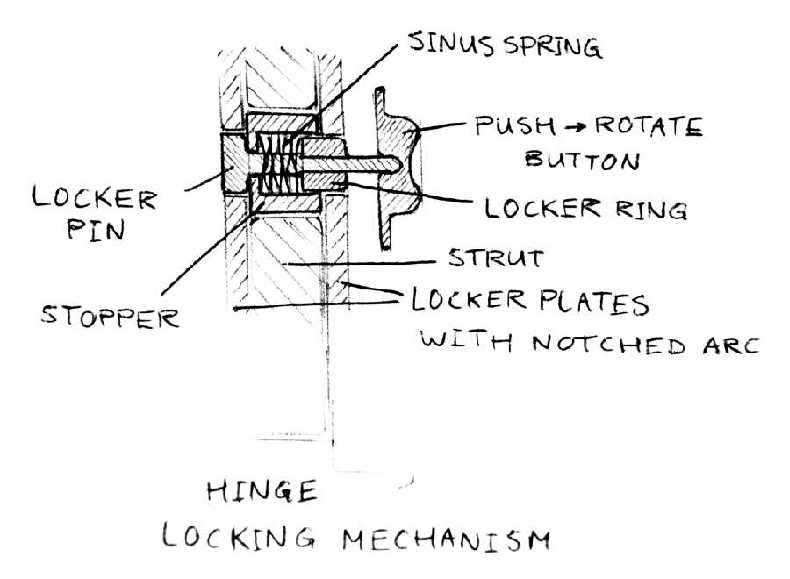 SINUS SPRING
PUSH → ROTATE
BUTTON
LOCKER
PIN
LOCKER RING
STRUT
STOPPER
LOCKER PLATES
WITH NOTCHED ARC
HINGE
LOCKING MECHANISM